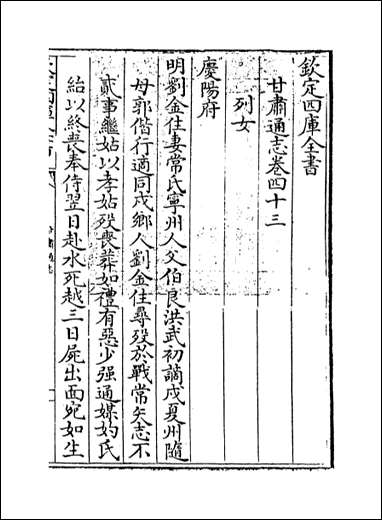 欽定四庫全書
甘肅通志卷四十三
列女
慶陽府
明劉金住妻常氏寧州人父伯良洪武初謫戍夏州隨
母郭偕行適同戍鄉人劉金住尋歿於戰常矢志不
貳事繼姑以孝姑歿喪葬如禮有惡少强通媒妁氏
紿以終喪奉侍翌日赴水死越三日屍出面宛如生